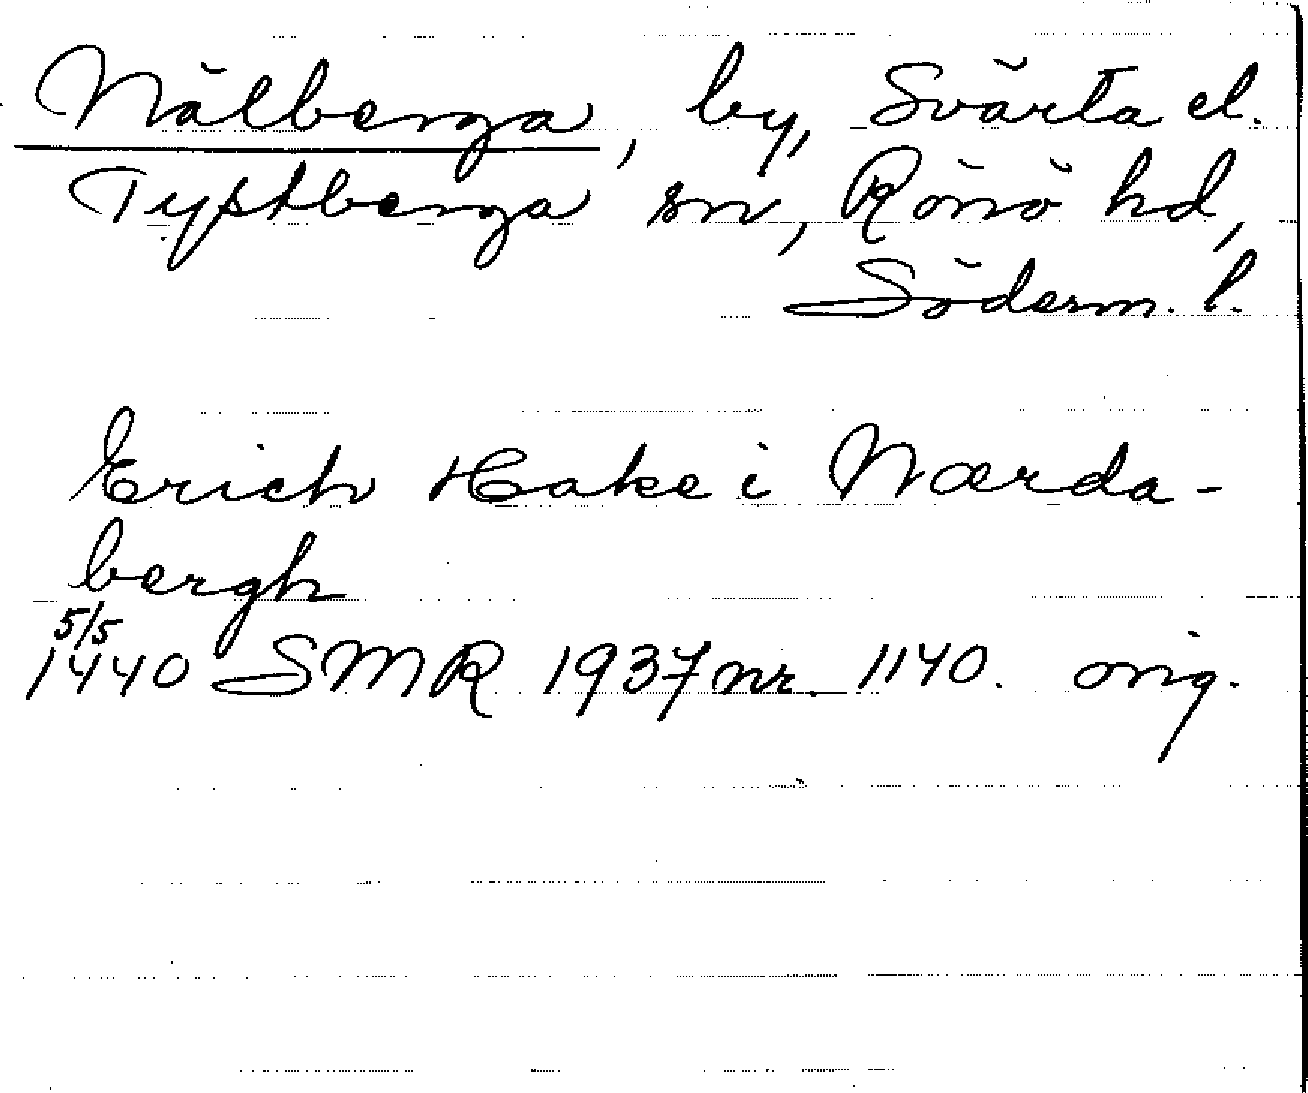 Nälberga, by, Svärta el.
Tystberga sn, Rönö hd,
Söderm. l.
Erich Hake i Nærda-
bergh
5/5
1440 SMR 1937 nr. 1140. orig.